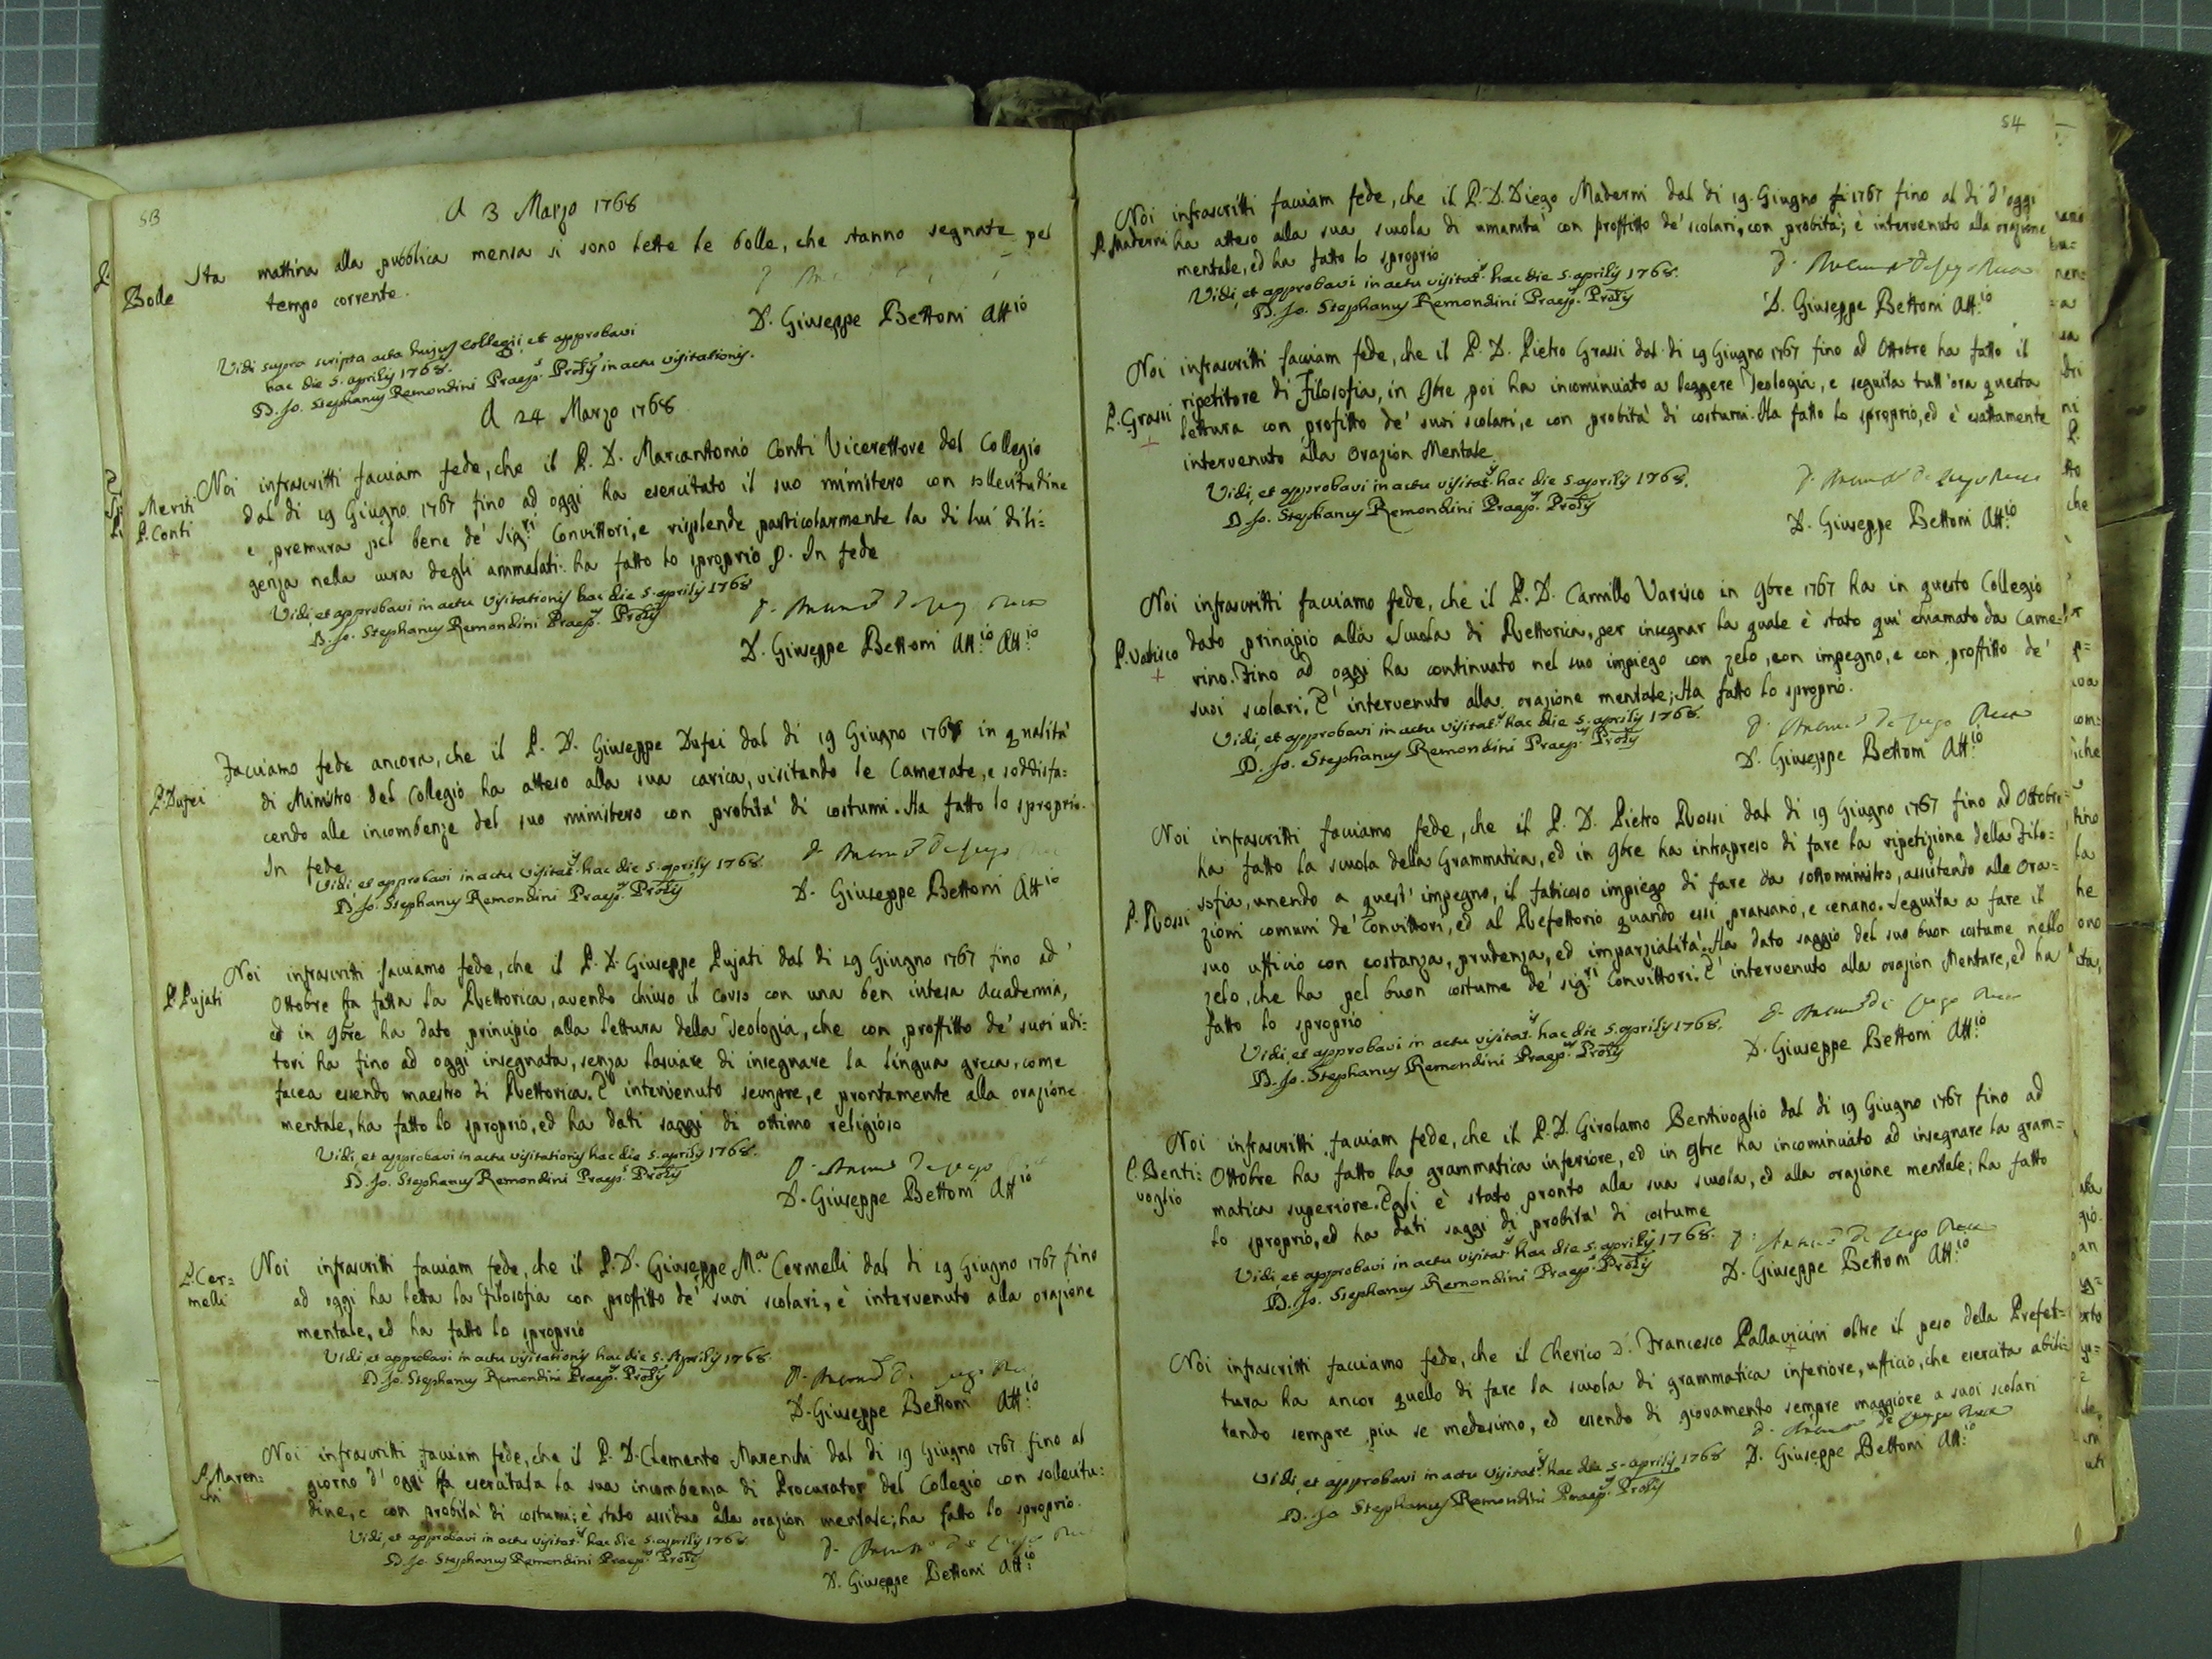 53
A 3 Marzo 1768
Sta mattina alla pubblica mensa si sono lette le bolle, che stanno segnate pel
Bolle
tempo corrente.
D. Giuseppe Bettoni Att.io
Vidi supra scripta acta hujus Collegii et approbavi
hac die 5. aprilis 1768.
D. Jo. Stephanus Remondini Praep.s Prolis in actu visitationis.
A 24 Marzo 1768
Noi infrascritti facciam fede, che il P. D. Marcantonio Conti Vicerettore del Collegio
Meriti
P. Conti
dal di 19 Giugno 1767 fino ad oggi ha esercitato il suo ministero con sollecitudine
e premura pel bene de' Sig.ri Convittori, e risplende particolarmente la di lui dili=
genza nella cura degli ammalati. ha fatto lo sproprio. In fede
Vidi, et approbavi in actu visitationis hac die 5. aprilis 1768
D. Jo. Stephanus Remondini Praep.s Prolis
D. Giuseppe Bettoni Att.io Att.io
Facciamo fede ancora, che il P. D. Giuseppe Dufei dal di 19 Giugno 1767 in qualità
P. Dufei
di Ministro del Collegio ha atteso alla sua carica, visitando le Camerate, e soddisfa=
cendo alle incombenze del suo ministero con probità di costumi. Ha fatto lo sproprio.
In fede
Vidi et approbavi in actu visitat.s hac die 5. aprilis 1768.
D. Jo. Stephanus Remondini Praep.s Prolis
D. Giuseppe Bettoni Att.io
Noi infrascritti facciamo fede, che il P. D. Giuseppe Pujati dal di 19 Giugno 1767 fino ad
P. Pujati
Ottobre ha fatta la Rettorica, avendo chiuso il corso con una ben intesa Accademia,
ed in 9bre ha dato principio alla lettura della Teologia, che con proffitto de' suoi udi=
tori ha fino ad oggi insegnata, senza lasciare di insegnare la lingua greca, come
facea essendo maestro di Rettorica. E' intervenuto sempre, e prontamente alla orazione
mentale, ha fatto lo sproprio, ed ha dati saggi di ottimo religioso
Vidi, et approbavi in actu visitationis hac die 5. aprilis 1768.
D. Jo. Stephanus Remondini Praep.s Prolis
D. Giuseppe Bettoni Att.io
Noi infrascritti facciam fede, che il P. D. Giuseppe M.a Cermelli dal di 19 Giugno 1767 fino
P. Cer=
melli
ad oggi ha letta la Filosofia con proffitto de' suoi scolari, è intervenuto alla orazione
mentale, ed ha fatto lo sproprio
Vidi et approbavi in actu visitationis hac die 5. Aprilis 1768.
D. Jo. Stephanus Remondini Praep.s Prolis
D. Giuseppe Bettoni Att.io
Noi infrascritti facciam fede, che il P. D. Clemente Marenchi dal di 19 Giugno 1767 fino al
P. Maren=
chi
giorno d'oggi ha esercitata la sua incombenza di Procurator del Collegio con sollecitu=
dine, e con probità di costumi; è stato assiduo alla orazion mentale; ha fatto lo sproprio.
Vidi, et approbavi in actu visitat.s hac die 5. aprilis 1768.
D. Jo. Stephanus Remondini Praep.s Prolis
D. Giuseppe Bettoni Att.io
54
Noi infrascritti facciam fede, che il P. D. Diego Maderni dal di 19. Giugno 1767 fino al di d'oggi
P. Maderni
ha atteso alla sua scuola di umanità con proffitto de' scolari, con probità; è intervenuto alla orazione
mentale, ed ha fatto lo sproprio
Vidi, et approbavi in actu visitat.s hac die 5. aprilis 1768.
D. Jo. Stephanus Remondini Praep.s Prolis
D. Giuseppe Bettoni Att.io
Noi infrascritti facciam fede, che il P. D. Pietro Grassi dal di 19 Giugno 1767 fino ad Ottobre ha fatto il
P. Grassi
ripetitore di Filosofia, in 9bre poi ha incominciato a leggere Teologia, e seguita tutt'ora questa
lettura con profitto de' suoi scolari, e con probità di costumi. Ha fatto lo sproprio, ed è esattamente
intervenuto alla Orazion Mentale
Vidi, et approbavi in actu visitat.s hac die 5. aprilis 1768.
D. Jo. Stephanus Remondini Praep.s Prolis
D. Giuseppe Bettoni Att.io
Noi infrascritti facciamo fede, che il P. D. Camillo Varisco in 9bre 1767 ha in questo Collegio
P. Varisco
dato principio alla Scuola di Rettorica, per insegnar la quale è stato qui chiamato da Came=
rino. Fino ad oggi ha continuato nel suo impiego con zelo, con impegno, e con proffitto de'
suoi scolari. E' intervenuto alla orazione mentale; Ha fatto lo sproprio.
Vidi, et approbavi in actu visitat.s hac die 5. aprilis 1768.
D. Jo. Stephanus Remondini Praep.s Prolis
D. Giuseppe Bettoni Att.io
Noi infrascritti facciamo fede, che il P. D. Pietro Rossi dal di 19 Giugno 1767 fino ad Ottobre
ha fatto la scuola della Grammatica, ed in 9bre ha intrapreso di fare la ripetizione della Filo=
P. Rossi
sofia, unendo a quest' impegno, il faticoso impiego di fare da sottoministro, assistendo alle Ora=
zioni comuni de' Convittori, ed al Refettorio quando essi pransano, e cenano. Seguita a fare il
suo ufficio con costanza, prudenza, ed imparzialità. Ha dato saggio del suo buon costume nello
zelo, che ha pel buon costume de' sig.ri convittori. E' intervenuto alla orazion Mentale, ed ha
fatto lo sproprio
Vidi, et approbavi in actu visitat.s hac die 5. aprilis 1768.
D. Jo. Stephanus Remondini Praep.s Prolis
D. Giuseppe Bettoni Att.io
Noi infrascritti facciam fede, che il P. D. Girolamo Bentivoglio dal di 19 Giugno 1767 fino ad
P. Benti=
voglio
Ottobre ha fatto la grammatica inferiore, ed in 9bre ha incominciato ad insegnare la gram=
matica superiore. Egli è stato pronto alla sua scuola, ed alla orazione mentale; ha fatto
lo sproprio, ed ha dati saggi di probità di costume
Vidi, et approbavi in actu visitat.s hac die 5. aprilis 1768.
D. Jo. Stephanus Remondini Praep.s Prolis
D. Giuseppe Bettoni Att.io
Noi infrascritti facciamo fede, che il Cherico D. Francesco Pallavicini oltre il peso della Prefet=
tura ha ancor quello di fare la scuola di grammatica inferiore, ufficio, che esercita abili=
tando sempre piu se medesimo, ed essendo di giovamento sempre maggiore a suoi scolari
Vidi, et approbavi in actu visitat.s hac die 5. aprilis 1768
D. Jo. Stephanus Remondini Praep.s Prolis
D. Giuseppe Bettoni Att.io